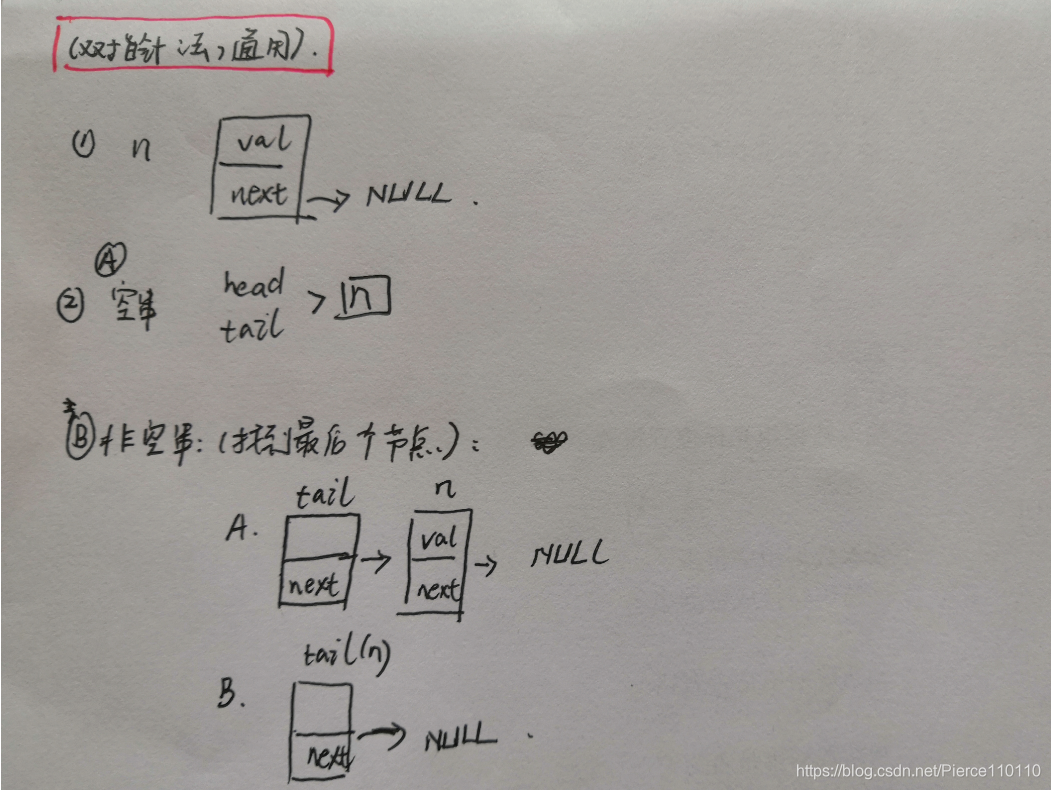 (双指针法,通用).
① n
val
next → NULL .
Ⓐ
② 空串
head
tail
> n
Ⓑ 非空串:(找到最后个节点.):
tail
n
A.
next
→
val
next
→ NULL
tail(n)
B.
next
→ NULL .
https://blog.csdn.net/Pierce110110